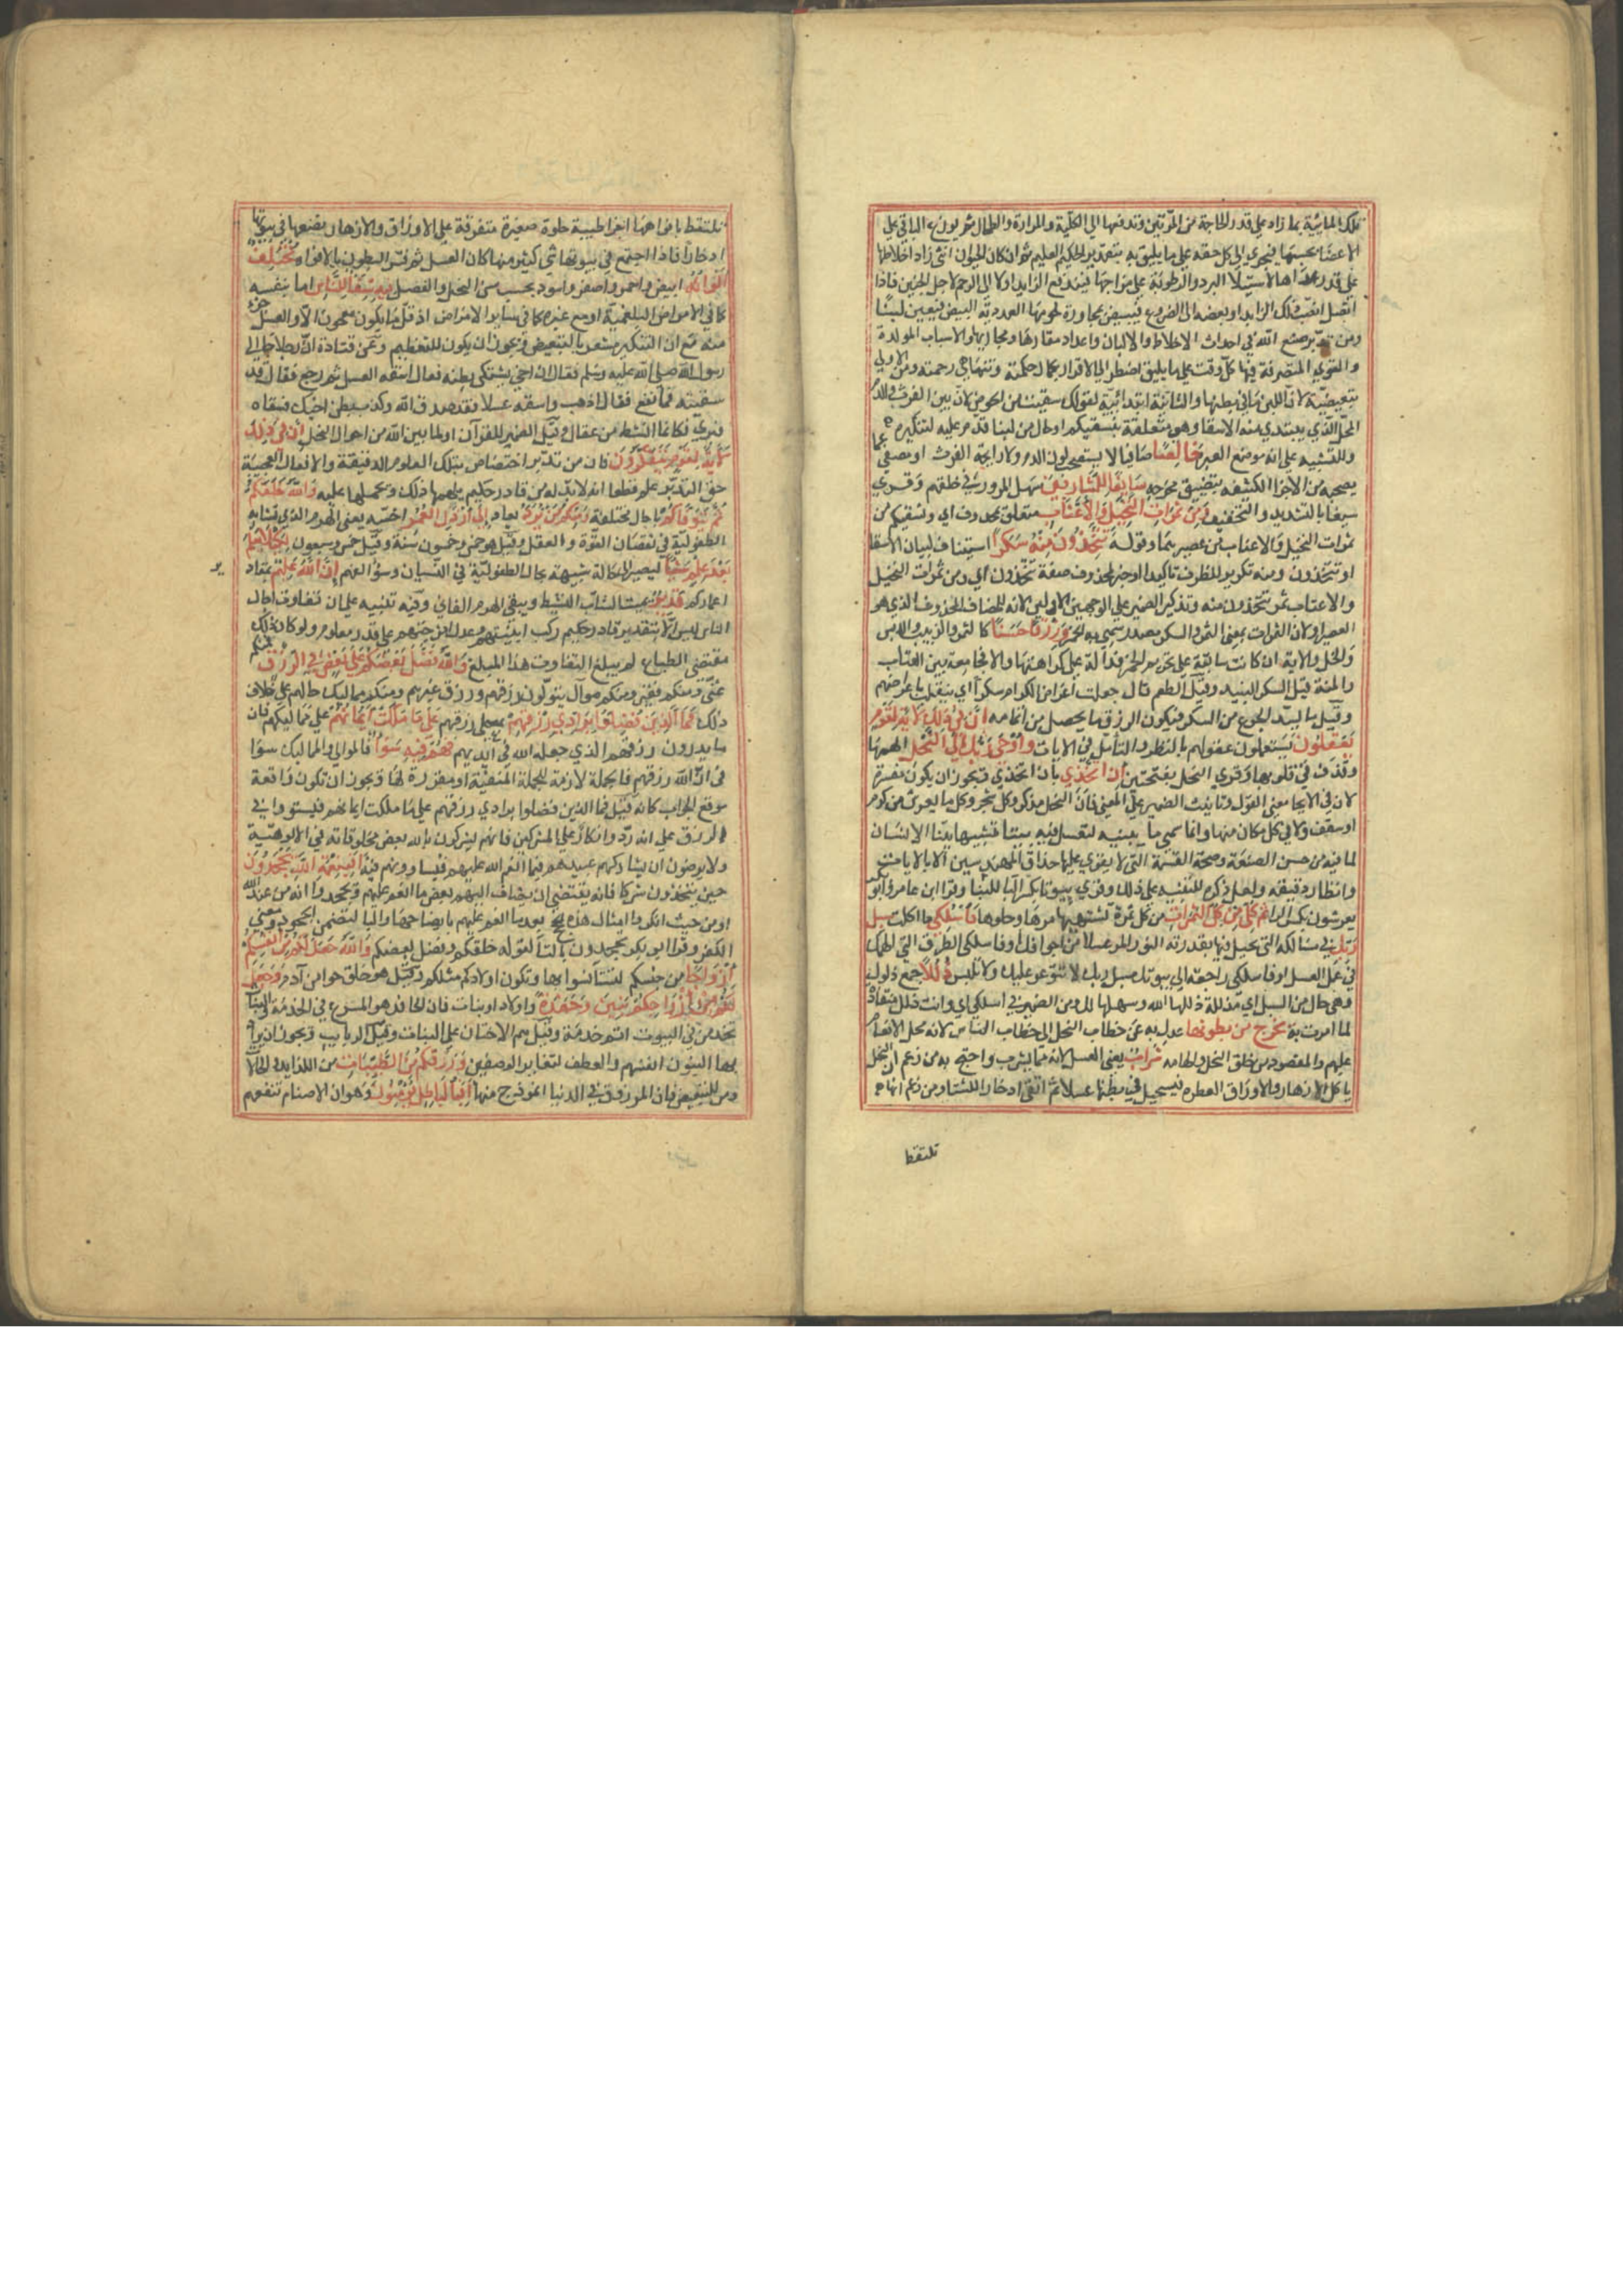 تلك المائية بما زاد على قدر الحاجة من المرتين وتدفعها الي الكلية والمرارة والطحال ثم يوزع الباقي علي
الاعضا بحسبها فيجري الي كل حقه علي ما يليق به بتقدير الحكيم العليم ثم ان كان الحيوان انثى زاد اخلاطها
على قدر غذاها لاستيلا البرد والرطوبة على مزاجها فيندفع الزايد اولا الى الرحم لاجل الجنين فاذا
انفصل انصب ذلك الزايد او بعضه الى الضروع فيبيض بمجاورة لحومها الغددية البيض فيصير لبنا
ومن تدبر صنع الله في احداث الاخلاط والالبان واعداد مقارها ومجاريها والاسباب المولدة
والقوي المتصرفة فيها كل وقت علي ما يليق اضطر الي الاقرار بكمال حكمته وتناهي رحمته ومن الاولي
تبعيضية لان اللبن في بطونها والثانية ابتدائية لقولك سقيت من الحوض لان بين الفرث والدم
المحل الذي يبتدي منه الاسقا وهو متعلقة بنسقيكم او حال من لبنا قدم عليه لتنكيره
وللتنبيه علي انه موضع العبرة خالصا صافيا لا يستصحب لون الدم ولا رايحة الفرث او مصفي عما
يصحبه من الاجزا الكثيفه بتضييق مخرجه سايغا للشاربين سهل المرور في حلقهم وقري
سيغا بالتشديد والتخفيف ومن ثمرات النخيل والاعناب متعلق بمحذوف اي ونسقيكم من
ثمرات النخيل والاعناب من عصيرهما وقوله تتخذون منه سكرا استيناف لبيان الاسقا
او تتخذون ومنه تكرير للظرف تاكيدا او خبر لمحذوف صفة تتخذون اي ومن ثمرات النخيل
والاعناب ثمر تتخذون منه وتذكير الضمير علي الوجهين الاولين لانه للمضاف المحذوف الذي هو
العصير او لان الثمرات بمعنى الثمر والسكر مصدر سمي به الخمر ورزقا حسنا كالتمر والزبيب والدبس
والخل والاية ان كانت سابقة على تحريم الخمر فدالة علي كراهتها والا فجامعة بين العتاب
والمنة وقيل السكر النبيذ وقيل الطعم قال جعلت اعراض الكرام سكرا اي تنقلت باعراضهم
وقيل ما يسد الجوع من السكر فيكون الرزق ما يحصل من اثمانه ان في ذلك لاية لقوم
يعقلون يستعملون عقولهم بالنظر والتأمل في الايات واوحى ربك الي النحل الهمها
وقذف في قلوبها وقري النحل بفتحتين ان اتخذي بان اتخذي ويجوز ان يكون مفسرة
لان في الايحا معنى القول وتانيث الضمير على المعني فان النحل مذكر وكل شجر وكل ما يعرش من كرم
او سقف ولا في كل مكان منها وانما سمي ما يبنيه لتعسل فيه بيتا تشبيها ببنا الانسان
لما فيه من حسن الصنعة وصحة القسمة التي لا يقوي عليها حذاق المهندسين الا بالات
وانظار دقيقه ولعل ذكره للتنبيه على ذلك وقري بيوتا بكسر البا للبنا وقرا ابن عامر وابو بكر
يعرشون بكسر الرا ثم كلي من كل الثمرات من كل ثمرة تشتهيها مرها وحلوها فاسلكي ما اكلت سبل
ربك في مسالكه التي يحيل فيها بقدرته النور المر عسلا من اجوافك او فاسلكي الطرق التي الهمك
في عمل العسل او فاسلكي راجعة الي بيوتك سبل ربك لا تتوعر عليك ولا تلتبس ذللا جمع ذلول
وهى حال من السبل اي مذللة ذللها الله وسهلها لك او من الضمير في اسلكي اي وانت ذلل منقادة
لما امرت به يخرج من بطونها عدل به عن خطاب النحل الى خطاب الناس لانه محل الانعام
عليهم والمقصود من خلق النحل والهامه شراب يعني العسل لانه مما يشرب واحتج به من زعم ان النحل
ياكل الازهار والاوراق العطره فيستحيل في بطنها عسلا ثم اتقي ادخارا للشتا ومن زعم انها
تلتقط
تلتقط بافواهها اجزا طيبة حلوة صغيرة متفرقة علي الاوراق والازهار يضعها في بيوتها
ادخارا فاذا اجتمع في بيوتها شي كثير منها كان العسل ثم فسر البطون بالافواه مختلف
الوانه ابيض واحمر واصفر واسود بحسب سن النحل والفصل فيه شفا للناس اما بنفسه
كما في الامراض البلغمية او مع غيره كما في ساير الامراض اذ قل ما يكون معجون الا والعسل جزء
منه مع ان التنكير مشعر بالتبعيض ويجوز ان يكون للتعظيم وعن قتادة ان رجلا جا الي
رسول الله صلى الله عليه وسلم فقال ان اخي يشتكي بطنه فقال اسقه العسل ثم رجع فقال قد
سقيته فما نفع فقال اذهب واسقه عسلا فقد صدق الله وكذب بطن اخيك فسقاه
فبري فكانما انشط من عقال وقيل الضمير للقرآن او لما بين الله من احوال النحل ان في ذلك
لاية لقوم يتفكرون فان من تدبر اختصاص بتلك العلوم الدقيقة والافعال العجيبة
حق التدبر علم قطعا انه لا بد له من قادر حكيم يلهمها ذلك ويحملها عليه والله خلقكم
ثم يتوفاكم باجال مختلفة ومنكم من يرد يعاد الى ارذل العمر اخسه يعنى الهرم الذي يشابه
الطفولية في نقصان القوة والعقل وقيل هو خمس وخمسون سنة وقيل خمس وسبعون لكيلا يعلم
بعد علم شيئا ليصير الى حالة شبيهة بحال الطفولية في النسيان وسؤ الفهم ان الله عليم بمقادير
اعماركم قدير يميت الشاب النشيط ويبقي الهرم الفاني وفيه تنبيه على ان تفاوت اجال
الناس ليس الا بتقدير قادر حكيم ركب ابنيتهم وعدل امزجتهم على قدر معلوم ولو كان ذلك
مقتضى الطباع لم يبلغ التفاوت هذا المبلغ والله فضل بعضكم على بعض في الرزق فمنكم
غني ومنكم فقير ومنكم موال يتولون رزقهم ورزق غيرهم ومنكم مماليك حالهم على خلاف
ذلك فما الذين فضلوا برادي رزقهم بمعطي رزقهم على ما ملكت ايمانهم على مماليكهم فان
ما يدرون رزقهم الذي جعله الله في ايديهم فهم فيه سوا فالموالي والمماليك سوا
في ان الله رزقهم فالجملة لازمة للجملة المنفية او مقررة لها ويجوز ان تكون واقعة
موقع الجواب كانه قيل فما الذين فضلوا برادي رزقهم علي ما ملكت ايمانهم فيستووا في
الرزق على انه رد وانكار علي المشركين فانهم يشركون بالله بعض مخلوقاته في الالوهية
ولا يرضون ان يشاركهم عبيدهم فيما انعم الله عليهم فيساوونهم فيه افبنعمة الله يجحدون
حيث يتخذون شركا فانه يقتضي ان يضاف اليهم بعض ما انعم عليهم ويجحدوا انه من عند الله
او من حيث انكروا امثال هذه الحجج بعد ما انعم عليهم بايضاحها والبا لتضمن الجحود معنى
الكفر وقرا ابو بكر تجحدون بالتا لقوله خلقكم وفضل بعضكم والله جعل لكم من انفسكم
ازواجا من جنسكم لتتانسوا بها وتكون اولادكم مثلكم وقيل هو خلق حوا من آدم وجعل
لكم من ازواجكم بنين وحفدة واولاد او بنات فان الحافد هو المسرع في الخدمة والبنات
تخدمن في البيوت اتم خدمة وقيل هم الاختان على البنات وقيل الربايب ويجوز ان يراد
بها البنون انفسهم والعطف لتغاير الوصفين ورزقكم من الطيبات من اللذايذ او الحلالات
ومن للتبعيض فان المرزوق في الدنيا انموذج منها افبالباطل يؤمنون وهو ان الاصنام تنفعهم